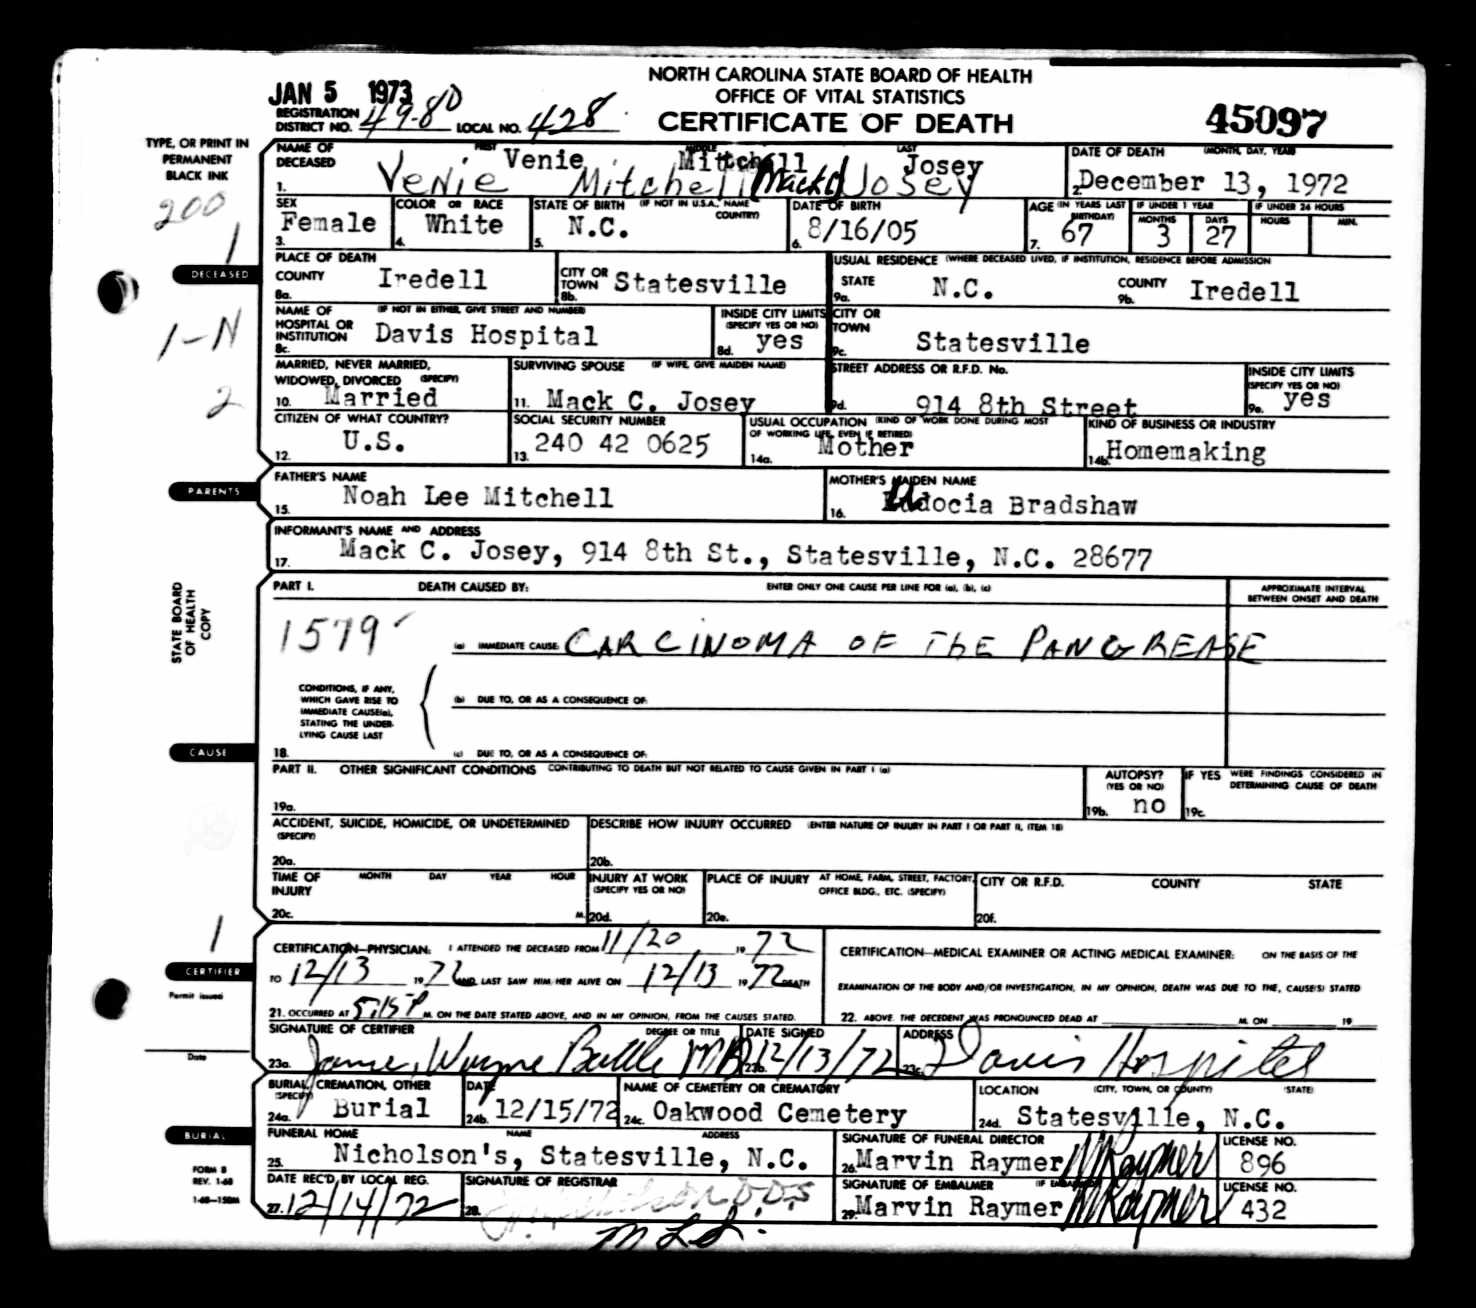 NORTH CAROLINA STATE BOARD OF HEALTH
OFFICE OF VITAL STATISTICS
CERTIFICATE OF DEATH
JAN 5 1973
REGISTRATION DISTRICT NO. 49-80 LOCAL NO. 428
45097
TYPE, OR PRINT IN
PERMANENT
BLACK INK
200
1
1-N
2
DECEASED
NAME OF DECEASED FIRST MIDDLE LAST
Venie Mitchell Josey
1. Venie Mitchell (Mack C) Josey
DATE OF DEATH (MONTH, DAY, YEAR)
2. December 13, 1972
SEX
3. Female
COLOR OR RACE
4. White
STATE OF BIRTH (IF NOT IN U.S.A., NAME COUNTRY)
5. N.C.
DATE OF BIRTH
6. 8/16/05
AGE (IN YEARS LAST BIRTHDAY)
7. 67
IF UNDER 1 YEAR
MONTHS DAYS
3 27
IF UNDER 24 HOURS
HOURS MIN.
PLACE OF DEATH
COUNTY
8a. Iredell
CITY OR TOWN
8b. Statesville
USUAL RESIDENCE (WHERE DECEASED LIVED, IF INSTITUTION, RESIDENCE BEFORE ADMISSION
STATE
9a. N.C.
COUNTY
9b. Iredell
NAME OF HOSPITAL OR INSTITUTION (IF NOT IN EITHER, GIVE STREET AND NUMBER)
8c. Davis Hospital
INSIDE CITY LIMITS (SPECIFY YES OR NO)
8d. yes
CITY OR TOWN
9c. Statesville
MARRIED, NEVER MARRIED, WIDOWED, DIVORCED (SPECIFY)
10. Married
SURVIVING SPOUSE (IF WIFE, GIVE MAIDEN NAME)
11. Mack C. Josey
STREET ADDRESS OR R.F.D. No.
9d. 914 8th Street
INSIDE CITY LIMITS (SPECIFY YES OR NO)
9e. yes
CITIZEN OF WHAT COUNTRY?
12. U.S.
SOCIAL SECURITY NUMBER
13. 240 42 0625
USUAL OCCUPATION (KIND OF WORK DONE DURING MOST OF WORKING LIFE, EVEN IF RETIRED)
14a. Mother
KIND OF BUSINESS OR INDUSTRY
14b. Homemaking
PARENTS
FATHER'S NAME
15. Noah Lee Mitchell
MOTHER'S MAIDEN NAME
16. Eudocia Bradshaw
INFORMANT'S NAME AND ADDRESS
17. Mack C. Josey, 914 8th St., Statesville, N.C. 28677
STATE BOARD
OF HEALTH
COPY
PART I. DEATH CAUSED BY: ENTER ONLY ONE CAUSE PER LINE FOR (a), (b), (c)
APPROXIMATE INTERVAL BETWEEN ONSET AND DEATH
1579
(a) IMMEDIATE CAUSE: CARCINOMA OF THE PANCREASE
CONDITIONS, IF ANY,
WHICH GAVE RISE TO
IMMEDIATE CAUSE(a),
STATING THE UNDER-
LYING CAUSE LAST
(b) DUE TO, OR AS A CONSEQUENCE OF:
CAUSE
18. (c) DUE TO, OR AS A CONSEQUENCE OF:
PART II. OTHER SIGNIFICANT CONDITIONS CONTRIBUTING TO DEATH BUT NOT RELATED TO CAUSE GIVEN IN PART I (a)
19a.
AUTOPSY? (YES OR NO)
19b. no
IF YES WERE FINDINGS CONSIDERED IN DETERMINING CAUSE OF DEATH
19c.
ACCIDENT, SUICIDE, HOMICIDE, OR UNDETERMINED (SPECIFY)
20a.
DESCRIBE HOW INJURY OCCURRED (ENTER NATURE OF INJURY IN PART I OR PART II, ITEM 18)
20b.
TIME OF INJURY MONTH DAY YEAR HOUR
20c. M.
INJURY AT WORK (SPECIFY YES OR NO)
20d.
PLACE OF INJURY AT HOME, FARM, STREET, FACTORY, OFFICE BLDG., ETC. (SPECIFY)
20e.
CITY OR R.F.D. COUNTY STATE
20f.
1
CERTIFIER
Permit issued
Date
CERTIFICATION—PHYSICIAN: I ATTENDED THE DECEASED FROM 11/20 19 72
TO 12/13 19 72 AND LAST SAW HIM/HER ALIVE ON 12/13 19 72 DEATH
21. OCCURRED AT 5:15 P M. ON THE DATE STATED ABOVE, AND IN MY OPINION, FROM THE CAUSES STATED.
CERTIFICATION—MEDICAL EXAMINER OR ACTING MEDICAL EXAMINER: ON THE BASIS OF THE
EXAMINATION OF THE BODY AND/OR INVESTIGATION, IN MY OPINION, DEATH WAS DUE TO THE, CAUSE(S) STATED
22. ABOVE. THE DECEDENT WAS PRONOUNCED DEAD AT M. ON 19
SIGNATURE OF CERTIFIER DEGREE OR TITLE
23a. James Wayne Battle MD
DATE SIGNED
23b. 12/13/72
ADDRESS
23c. Davis Hospital
BURIAL, CREMATION, OTHER (SPECIFY)
24a. Burial
DATE
24b. 12/15/72
NAME OF CEMETERY OR CREMATORY
24c. Oakwood Cemetery
LOCATION (CITY, TOWN, OR COUNTY) (STATE)
24d. Statesville, N.C.
BURIAL
FUNERAL HOME NAME ADDRESS
25. Nicholson's, Statesville, N.C.
SIGNATURE OF FUNERAL DIRECTOR
26. Marvin Raymer M Raymer
LICENSE NO.
896
FORM 8
REV. 1-68
1-68—150M
DATE REC'D BY LOCAL REG.
27. 12/14/72
SIGNATURE OF REGISTRAR
28. D.D.S
SIGNATURE OF EMBALMER
29. Marvin Raymer M Raymer
LICENSE NO.
432